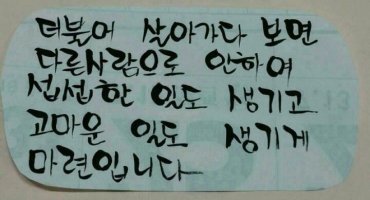 더불어 살아가다 보면
다른사람으로 인하여
섭섭한 일도 생기고
고마운 일도 생기게
마련입니다